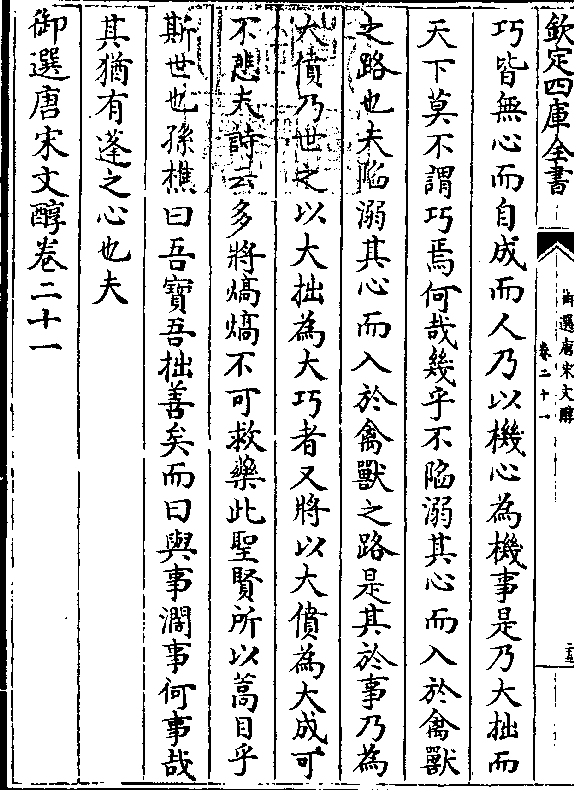 欽定四庫全書
御選唐宋文醇
卷二十一
巧皆無心而自成而人乃以機心為機事是乃大拙而
天下莫不謂巧焉何哉幾乎不陷溺其心而入於禽獸
之路也夫陷溺其心而入於禽獸之路是其於事乃為
大僨乃世之以大拙為大巧者又將以大僨為大成可
不悲夫詩云多將熇熇不可救藥此聖賢所以蒿目乎
斯世也孫樵曰吾寶吾拙善矣而曰與事濶事何事哉
其猶有蓬之心也夫
御選唐宋文醇卷二十一